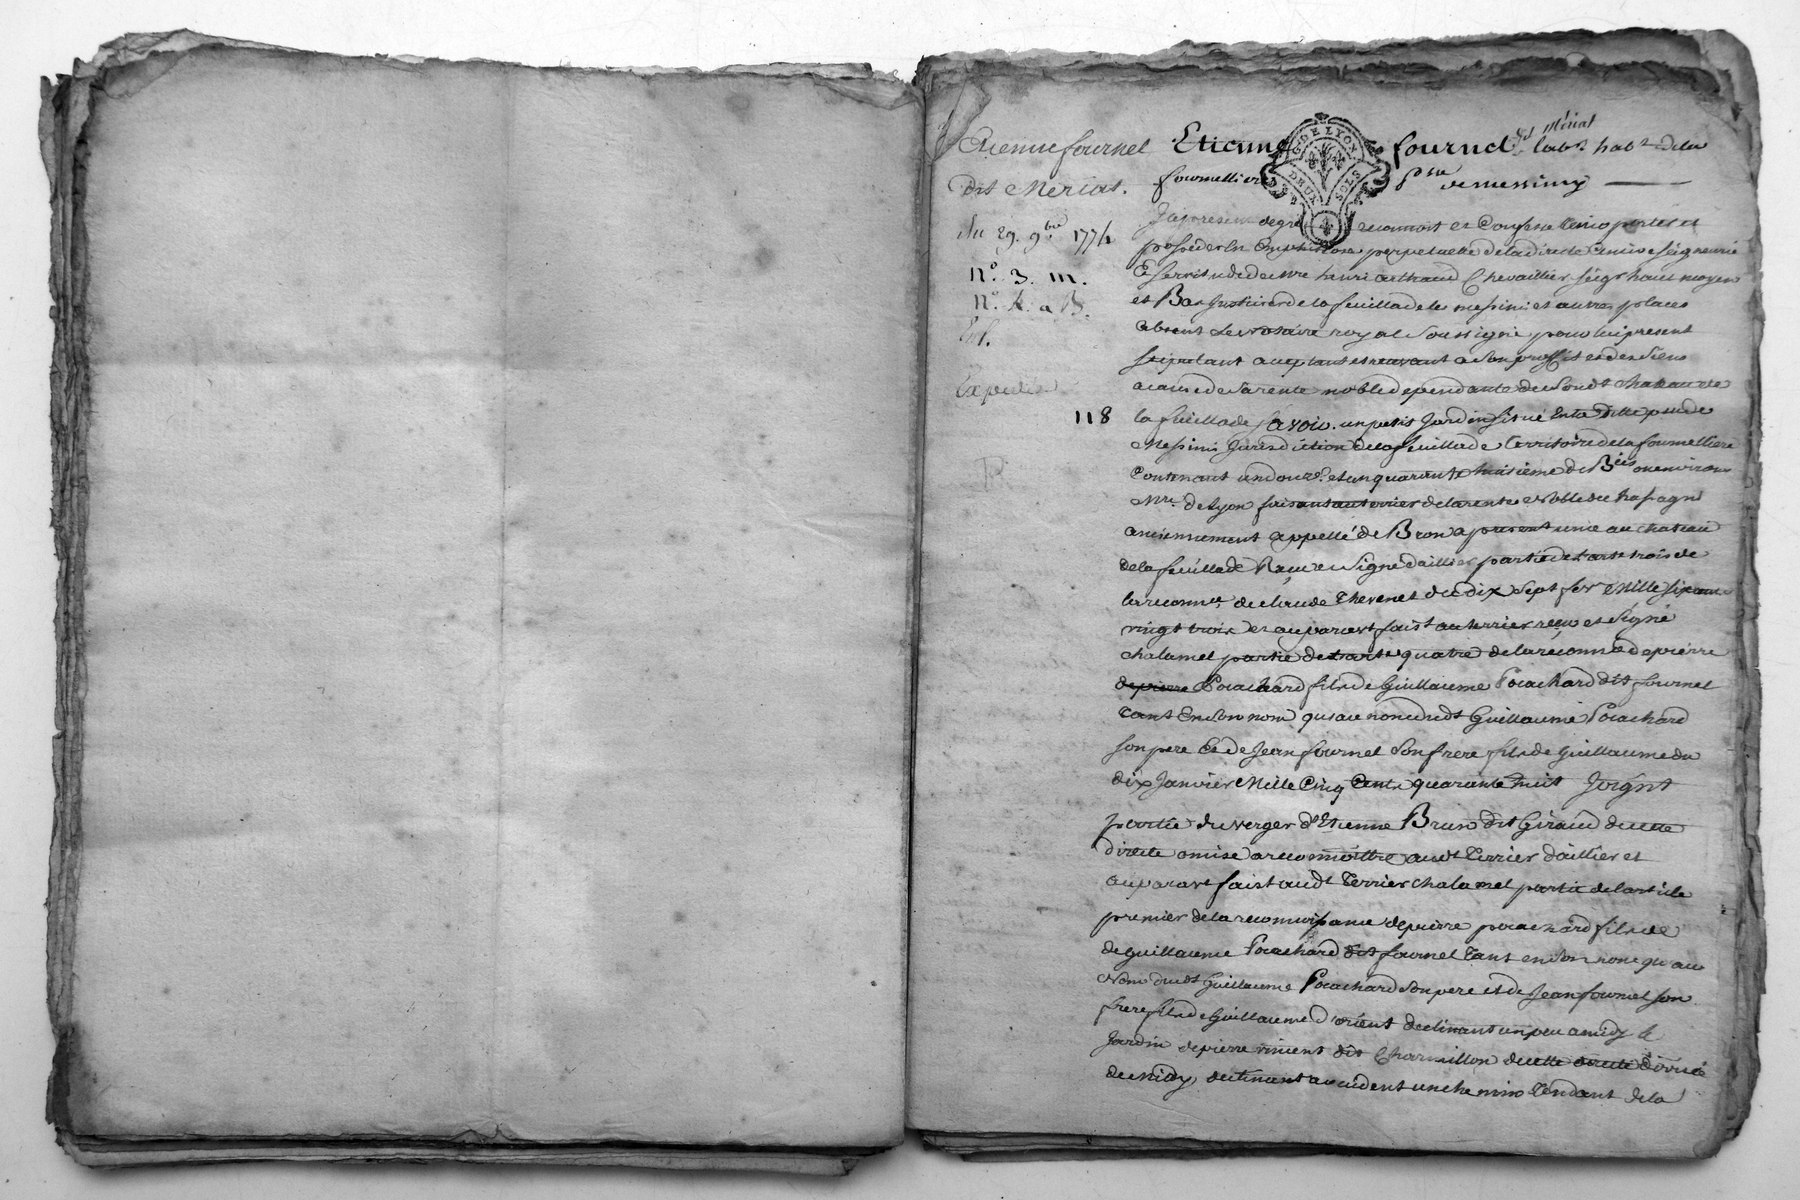 Etienne fournel
dit Merias.
du 29. 9bre 1774
n.° 3. m.
n.° K. a B.
Expedié
118
Etienne fournel dt Mérias labr habt de la
fournelliere psse de messimy
G. DE LYON
DEUX SOLS
4
Jcy present de gré reconnoit et Confesse tenir porter et
posseder En Emphiteose perpetuelle de la directe Censive seigneurie
Et servitude de mre henri arthaud Chevaillier seigr haut moyen
et Bas Justicier de la feuillade de messimi et autres places
absent Le Notaire royal Soussigné pour lui present
stipulant acceptant et recevant a son proffit et des siens
a cause de sa rente noble dependante de son dt chateau de
la feuillade savoir. un petit Jardin situé En la ditte psse de
Messimi Jurisdiction de la feuillade territoire de la fournelliere
Contenant un douze. et un quarante huitieme de Bées ou environ
Mre. de Lyon faisant au terrier de la rente Noble de chassagni
anciennement appellé de Bron a present unie au chateau
de la feuillade Reçu et signé daillier partie de l'arte trois de
la reconnce. de claude Thevenet du dix sept fevr Mille six cent
vingt trois et auparavt faist au terrier reçu et signé
chalamel partie de l'arte quatre de la reconnce de pierre
de pierre Pocachard fils de Guillaume Pocachard dit fournel
tant En son nom qu'au nom dudt Guillaume Pocachard
son pere Et de Jean fournel son frere fils de Guillaume du
dix Janvier Mille Cinq Cents quarante huit Joignt
partie du verger d'Etienne Brun dit Giraud de cette
directe omise a reconnoittre audt Terrier daillier et
auparavt faist audt Terrier chalamel partie de l'article
premier de la reconnoissance de pierre pocachard fils de
de Guillaume Pocachard dit fournel Tant en son nom qu'au
Nom dudt Guillaume Pocachard son pere et de Jean fournel son
frere fils de Guillaume d'orient declinant un peu a midy le
Jardin de pierre vincent dit Charmillon de cette directe divisé
de midy, declinant a occident un chemin Tendant de la